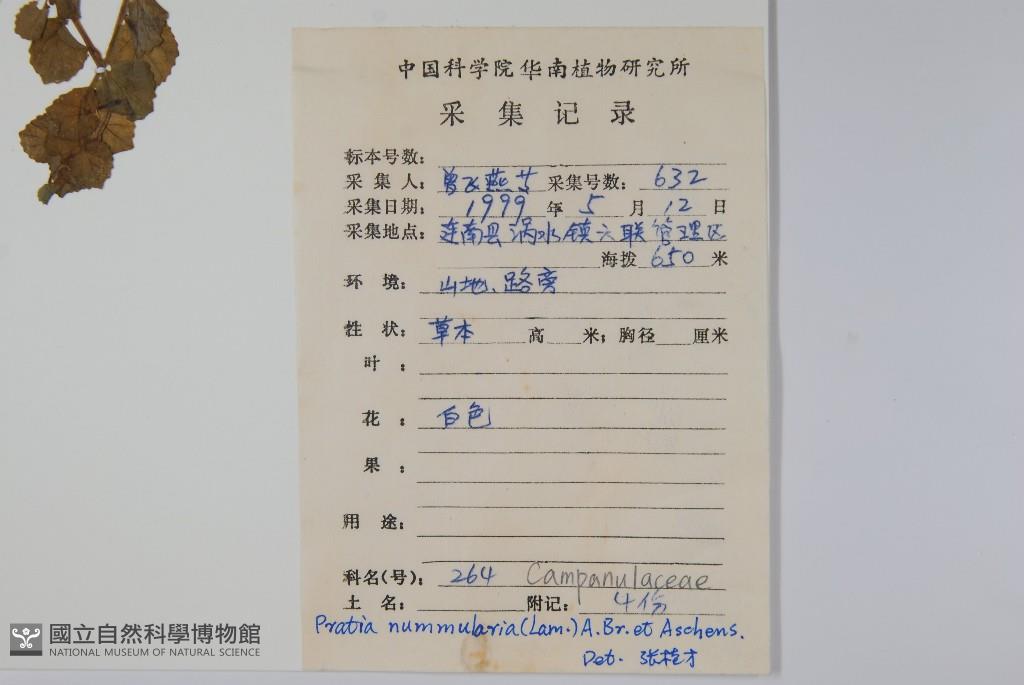 中国科学院华南植物研究所
采集记录
标本号数：
采集人：曾飞燕等 采集号数：632
采集日期：1999年5月12日
采集地点：连南县涡水镇六联管理区
海拨 650 米
环境：山地、路旁
性状：草本 高 米；胸径 厘米
叶：
花：白色
果：
用途：
科名(号)：264 Campanulaceae
土名： 附记：4份
Pratia nummularia (Lam.) A.Br. et Aschens.
Det. 张桂才
國立自然科學博物館
NATIONAL MUSEUM OF NATURAL SCIENCE